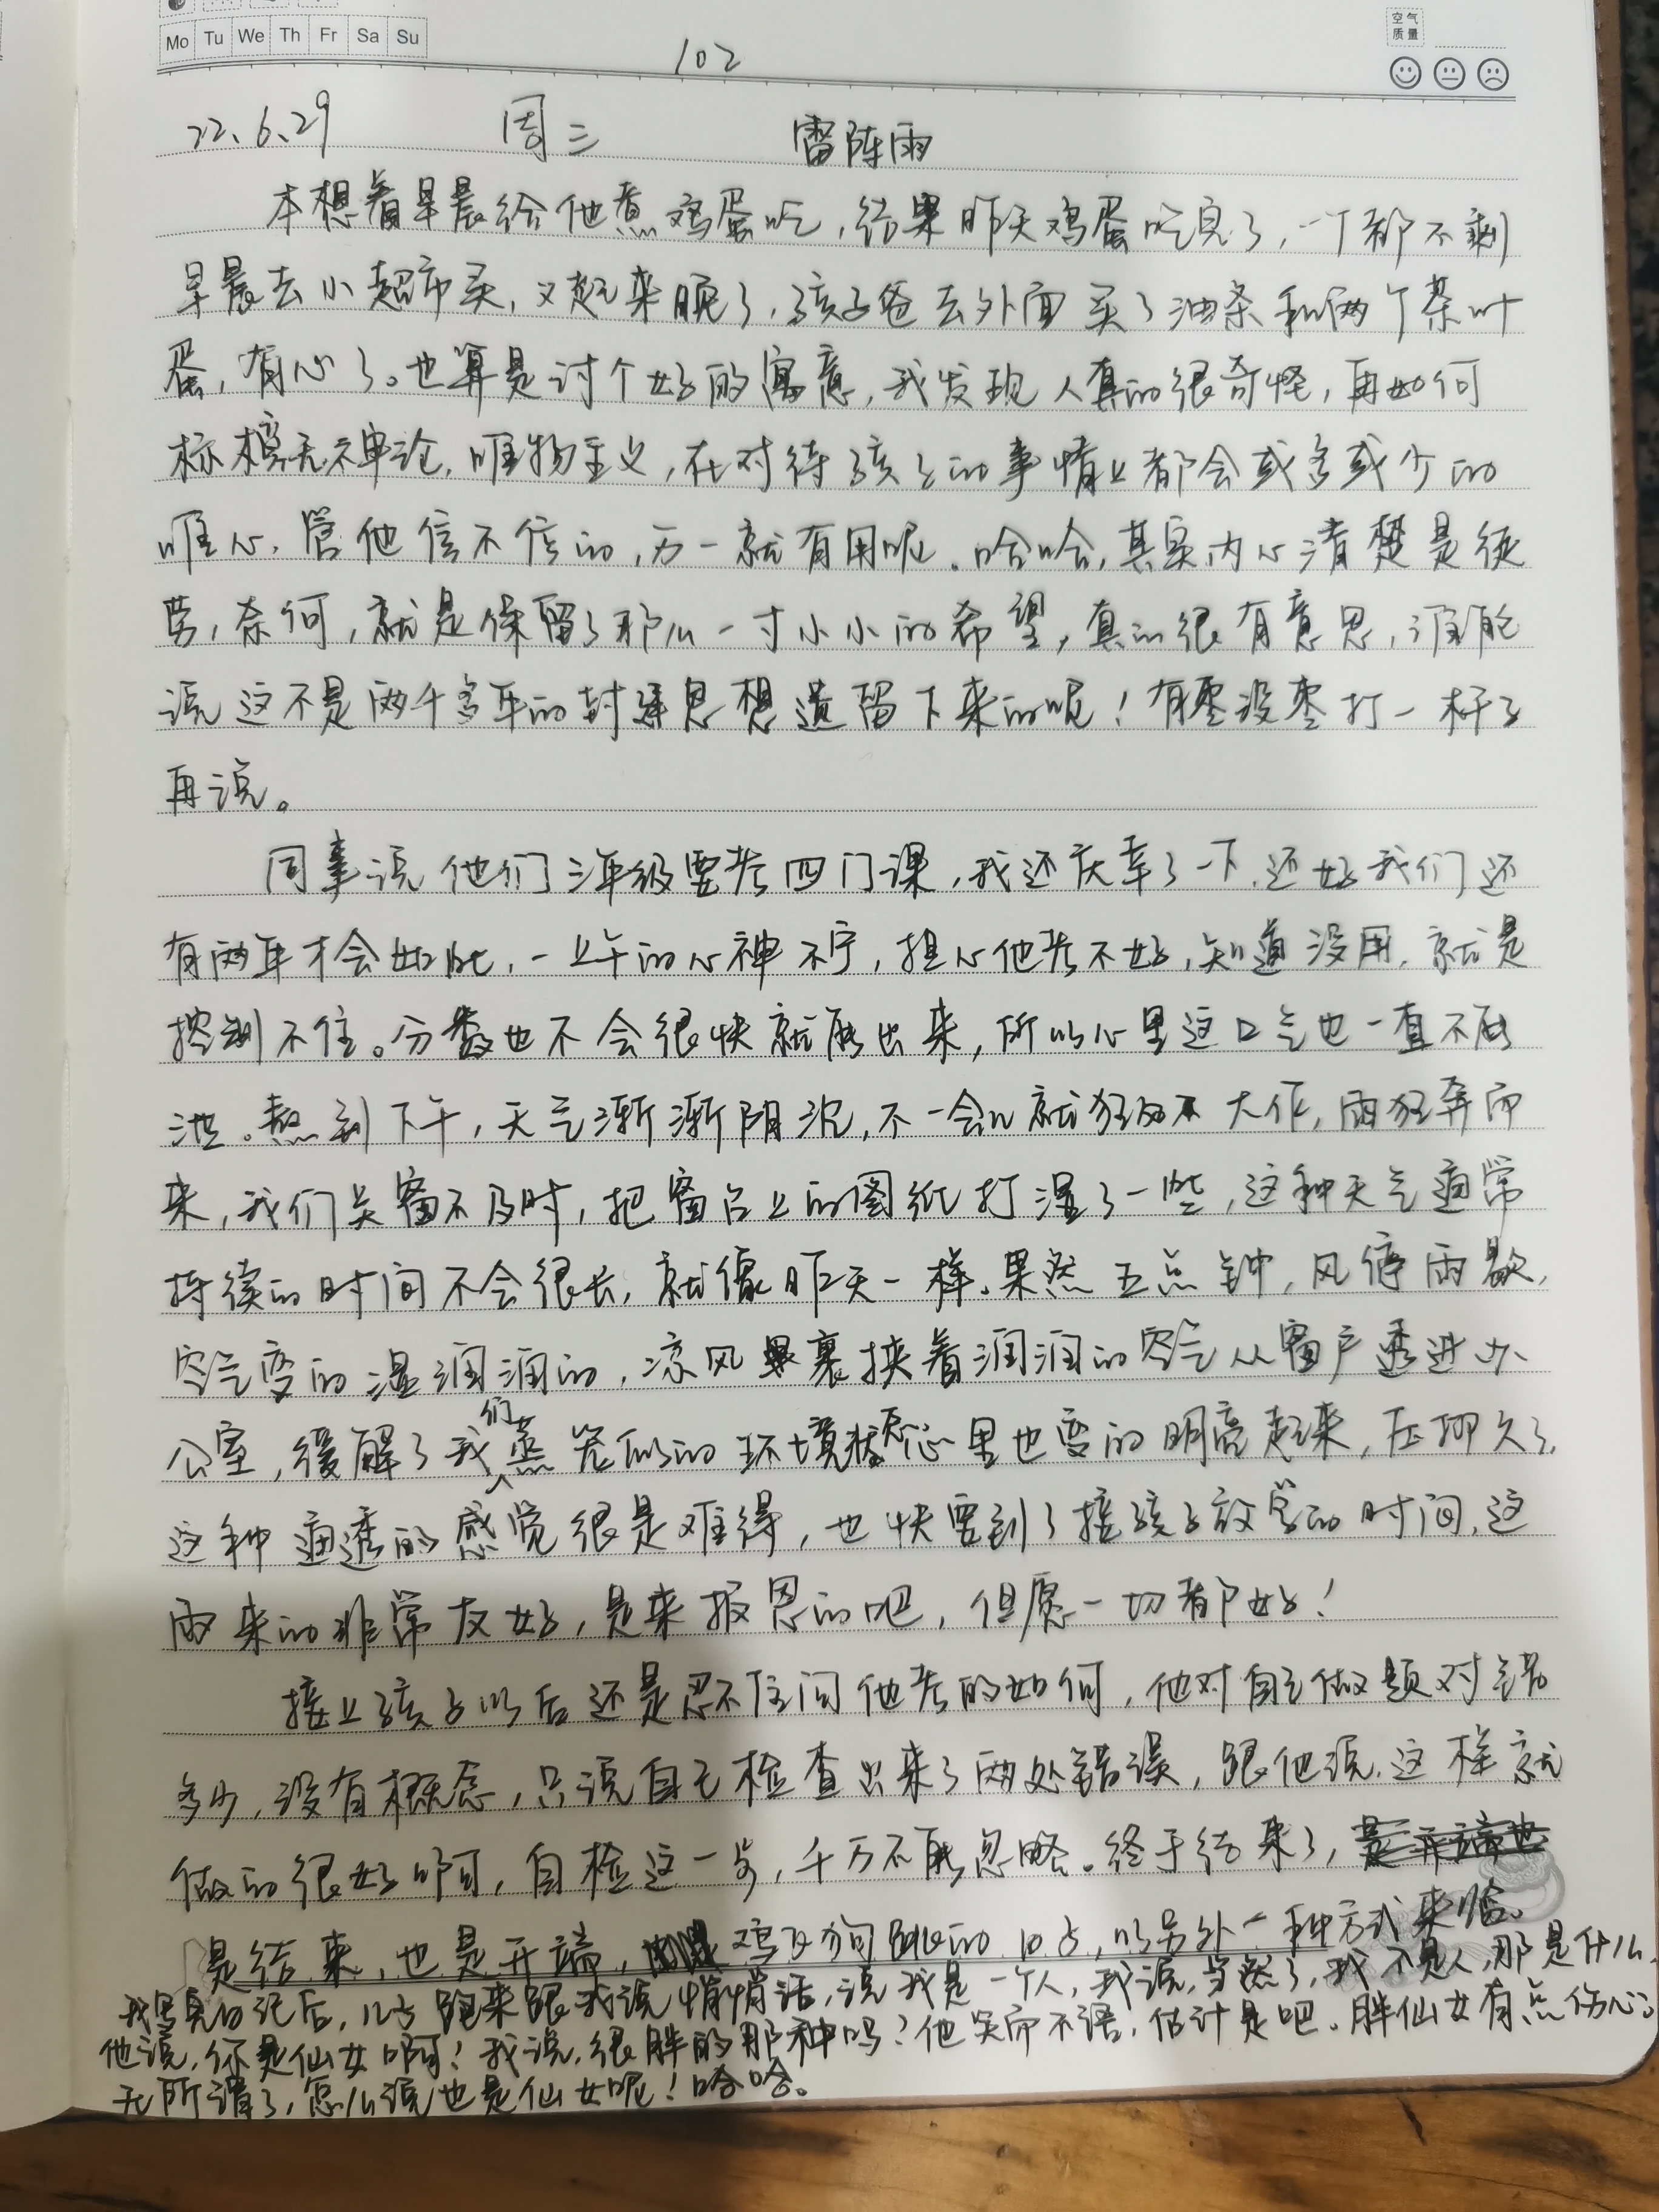 Mo Tu We Th Fr Sa Su
102
空气
质量
22.6.29 周三 雷阵雨
本想着早晨给他煮鸡蛋吃,结果昨天鸡蛋吃完了,一个都不剩
早晨去小超市买,又起来晚了,孩子爸去外面买了油条和两个茶叶
蛋,有心了。也算是讨个好的寓意,我发现人真的很奇怪,再如何
标榜无神论,唯物主义,在对待孩子的事情上都会或多或少的
唯心,管他信不信的,万一就有用呢。哈哈,其实内心清楚是徒
劳,奈何,就是保留了那么一寸小小的希望,真的很有意思,谁能
说这不是两千多年的封建思想遗留下来的呢!有枣没枣打一杆子
再说。
同事说他们三年级要考四门课,我还庆幸了一下,还好我们还
有两年才会如此,一上午的心神不宁,担心他考不好,知道没用,就是
控制不住。分数也不会很快就能出来,所以心里这口气也一直不能
泄。熬到下午,天气渐渐阴沉,不一会儿就狂风大作,雨狂奔而
来,我们关窗不及时,把窗台上的图纸打湿了一些,这种天气通常
持续的时间不会很长,就像昨天一样。果然五点钟,风停雨歇,
空气变的湿润润的,凉风裹挟着润润的空气从窗户透进办
公室,缓解了我们蒸笼似的环境状态,心里也变的明亮起来,压抑久了,
这种通透的感觉很是难得,也快要到了接孩子放学的时间,这
雨来的非常友好,是来报恩的吧,但愿一切都好!
接上孩子以后还是忍不住问他考的如何,他对自己做题对错
多少,没有概念,只说自己检查出来了两处错误,跟他说,这样就
做的很好啊,自检这一步,千万不能忽略。终于结束了,
是结束,也是开端,鸡飞狗跳的,以另外一种方式来临。
我写完日记后,儿子跑来跟我说悄悄话,说我是一个人,我说,当然了,我不是人,那是什么,
他说,你是仙女啊!我说,很胖的那种吗?他笑而不语,估计是吧。胖仙女有点伤心。
无所谓了,怎么说也是仙女呢!哈哈。